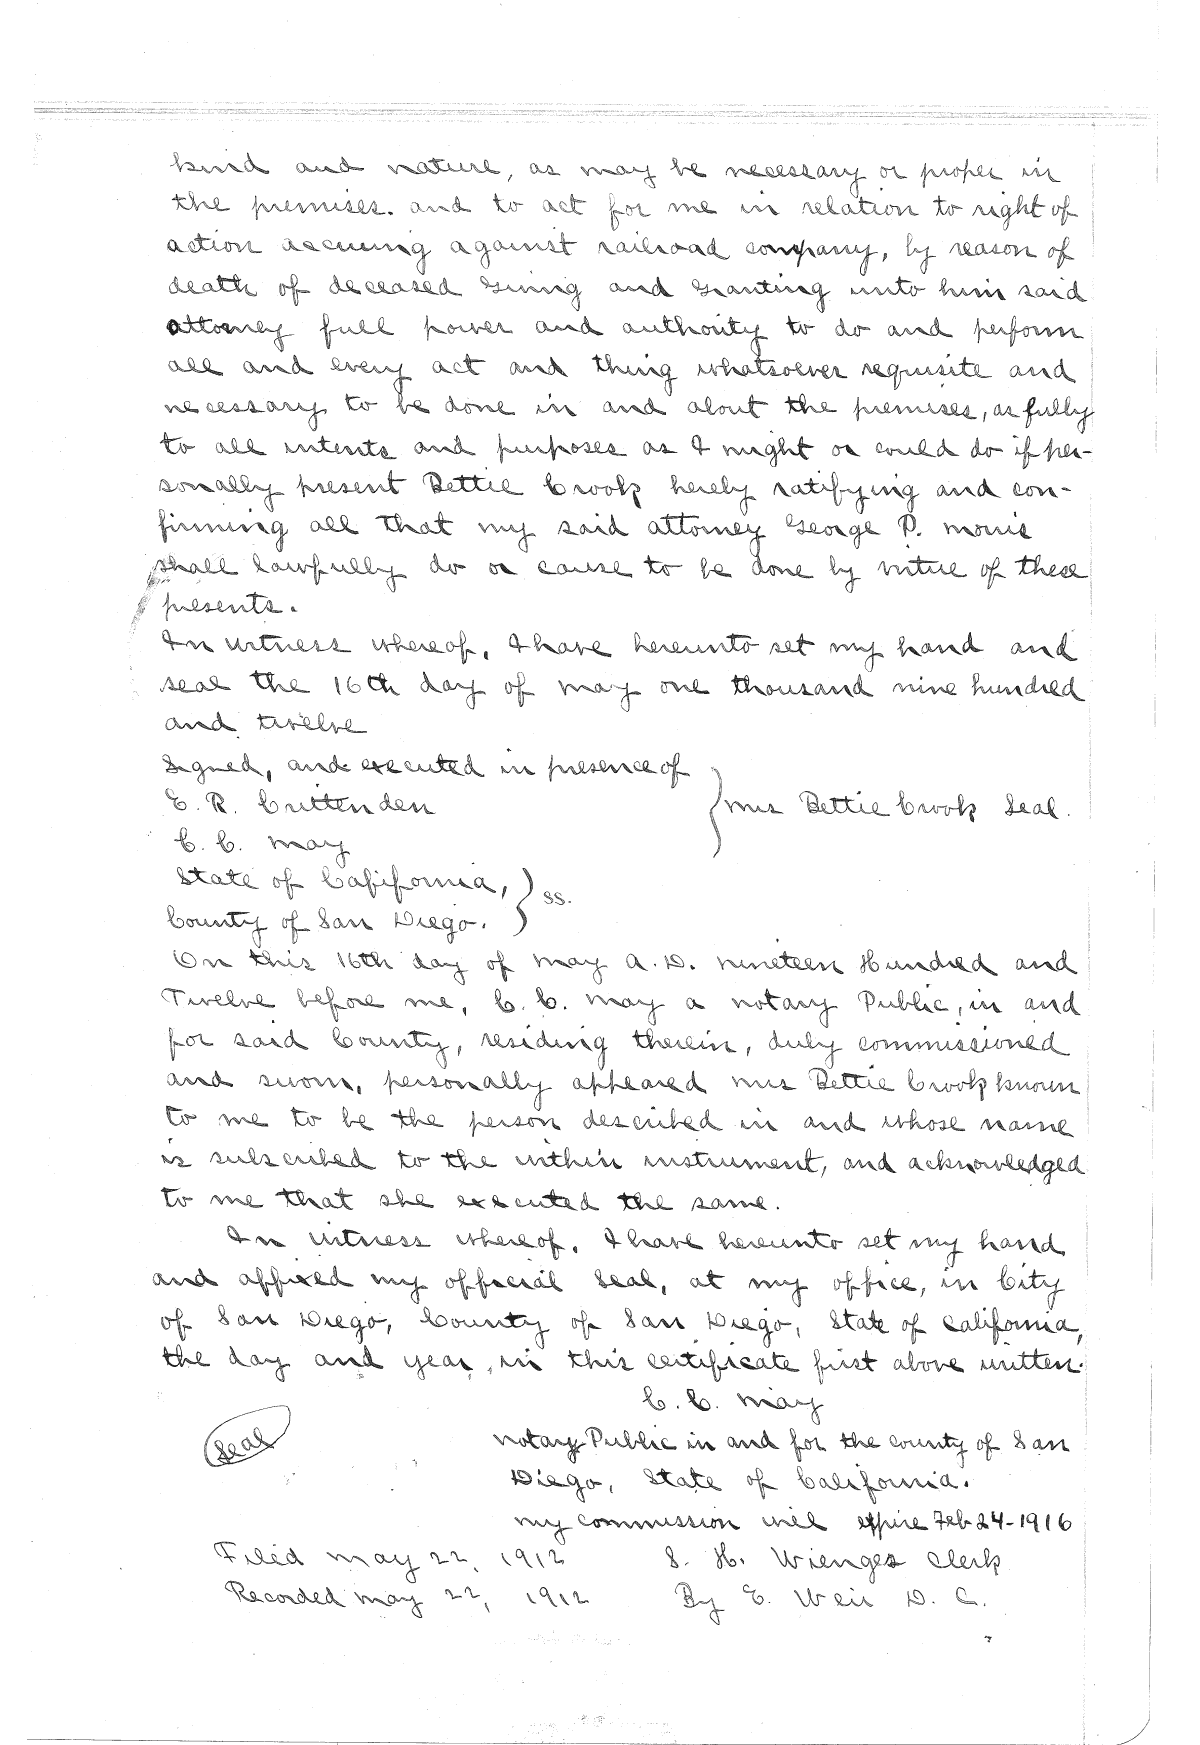 kind and nature, as may be necessary or proper in
the premises. and to act for me in relation to right of
action accruing against railroad company, by reason of
death of deceased Giving and Granting unto him said
attorney full power and authority to do and perform
all and every act and thing whatsoever requisite and
necessary to be done in and about the premises, as fully
to all intents and purposes as I might or could do if per-
sonally present Bettie Crook hereby ratifying and con-
firming all that my said attorney George P. Morris
shall lawfully do or cause to be done by virtue of these
presents.
In witness whereof, I have hereunto set my hand and
seal the 16th day of May one thousand nine hundred
and twelve
Signed, and executed in presence of
E. R. Crittenden
} Mrs Bettie Crook Seal.
C. C. May
State of California, } ss.
County of San Diego.
On this 16th day of May A. D. nineteen Hundred and
Twelve before me, C. C. May a notary Public, in and
for said County, residing therein, duly commissioned
and sworn, personally appeared Mrs Bettie Crook known
to me to be the person described in and whose name
is subscribed to the within instrument, and acknowledged
to me that she executed the same.
In witness whereof, I have hereunto set my hand
and affixed my official Seal, at my office, in City
of San Diego, County of San Diego, State of California,
the day and year, in this certificate first above written.
C. C. May
Seal
Notary Public in and for the county of San
Diego, State of California.
My commission will expire Feb 24-1916
Filed May 22, 1912 S. H. Wienges Clerk
Recorded May 22, 1912 By E. Weir D. C.